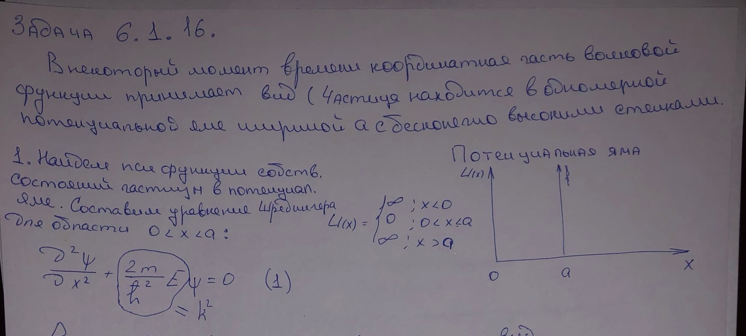 ЗАДАЧА 6.1.16.
В некоторый момент времени координатная часть волновой
функции принимает вид (Частица находится в одномерной
потенциальной яме шириной a с бесконечно высокими стенками.
1. Найдем пси функции собств.
состояний частицы в потенциал.
яме. Составим уравнение Шредингера
для области 0 < x < a :
ПОТЕНЦИАЛЬНАЯ ЯМА
U(x)
U(x) = { ∞ ; x < 0
0 ; 0 < x < a
∞ ; x > a
0 a x
∂²ψ/∂x² + 2m/ħ² E ψ = 0 (1)
= k²